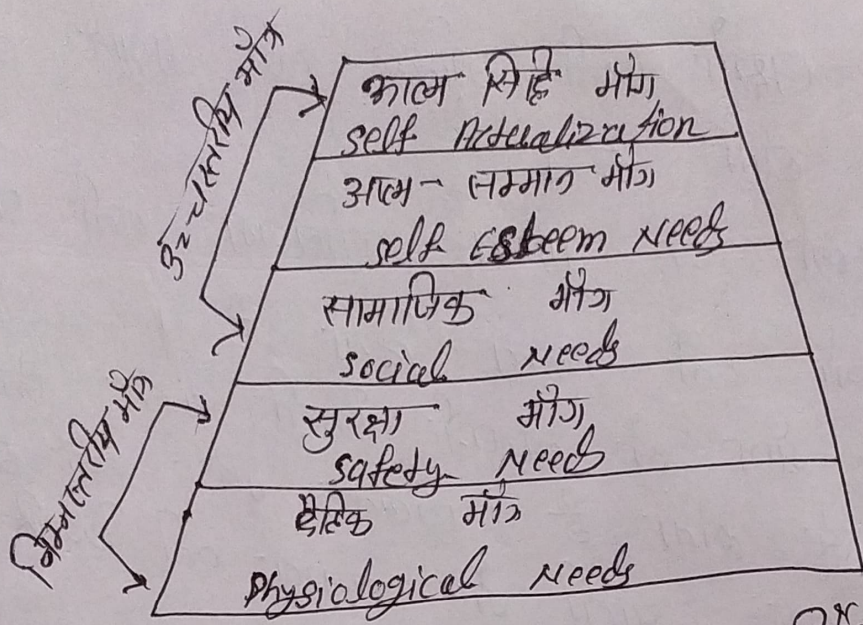 उच्चस्तरीय माँग
आत्म सिद्धि माँग
Self Actualization
आत्म - सम्मान माँग
Self Esteem Needs
सामाजिक माँग
Social Needs
निम्नस्तरीय माँग
सुरक्षा माँग
Safety Needs
दैहिक माँग
Physiological Needs